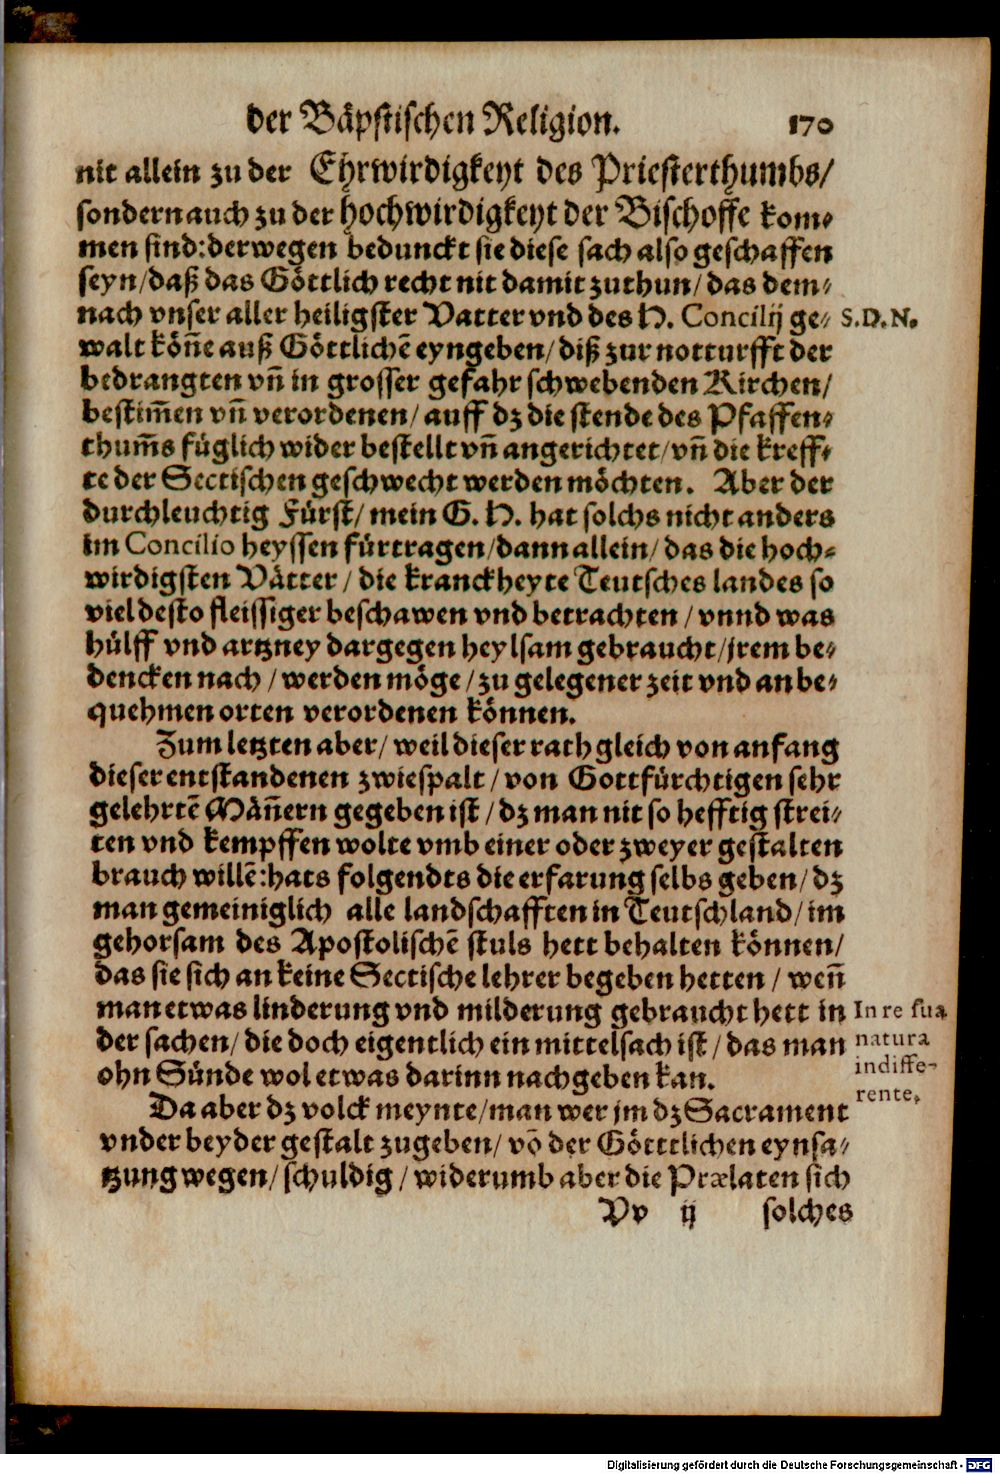 der Bäpstischen Religion. 170
nit allein zu der Ehrwirdigkeyt des Priesterthumbs/
sondern auch zu der hochwirdigkeyt der Bischoffe kom-
men sind: derwegen bedunckt sie diese sach also geschaffen
seyn/ daß das Göttlich recht nit damit zuthun/ das dem-
nach vnser aller heiligster Vatter vnd des H. Concilij ge- S.D.N.
walt köñe auß Göttlichẽ eyngeben/ diß zur notturfft der
bedrangten vñ in grosser gefahr schwebenden Kirchen/
bestim̃en vñ verordenen/ auff dz die stende des Pfaffen-
thum̃s füglich wider bestellt vñ angerichtet/ vñ die kreff-
te der Sectischen geschwecht werden möchten. Aber der
durchleuchtig Fürst/ mein G. H. hat solchs nicht anders
im Concilio heyssen fürtragen/ dann allein/ das die hoch-
wirdigsten Vätter/ die kranckheyte Teutsches landes so
viel desto fleissiger beschawen vnd betrachten/ vnnd was
hülff vnd artzney dargegen heylsam gebraucht/ jrem be-
dencken nach/ werden möge/ zu gelegener zeit vnd an be-
quehmen orten verordenen können.
Zum letzten aber/ weil dieser rath gleich von anfang
dieser entstandenen zwiespalt/ von Gottfürchtigen sehr
gelehrtẽ Mäñern gegeben ist/ dz man nit so hefftig strei-
ten vnd kempffen wolte vmb einer oder zweyer gestalten
brauch willẽ: hats folgendts die erfarung selbs geben/ dz
man gemeiniglich alle landschafften in Teutschland/ im
gehorsam des Apostolischẽ stuls hett behalten können/
das sie sich an keine Sectische lehrer begeben hetten/ weñ
man etwas linderung vnd milderung gebraucht hett in In re sua
der sachen/ die doch eigentlich ein mittelsach ist/ das man natura
indiffe-
ohn Sünde wol etwas darinn nachgeben kan.
rente.
Da aber dz volck meynte/ man wer jm dz Sacrament
vnder beyder gestalt zugeben/ võ der Götttlichen eynsa-
tzung wegen/ schuldig/ widerumb aber die Prælaten sich
Vv ij solches
Digitalisierung gefördert durch die Deutsche Forschungsgemeinschaft - DFG